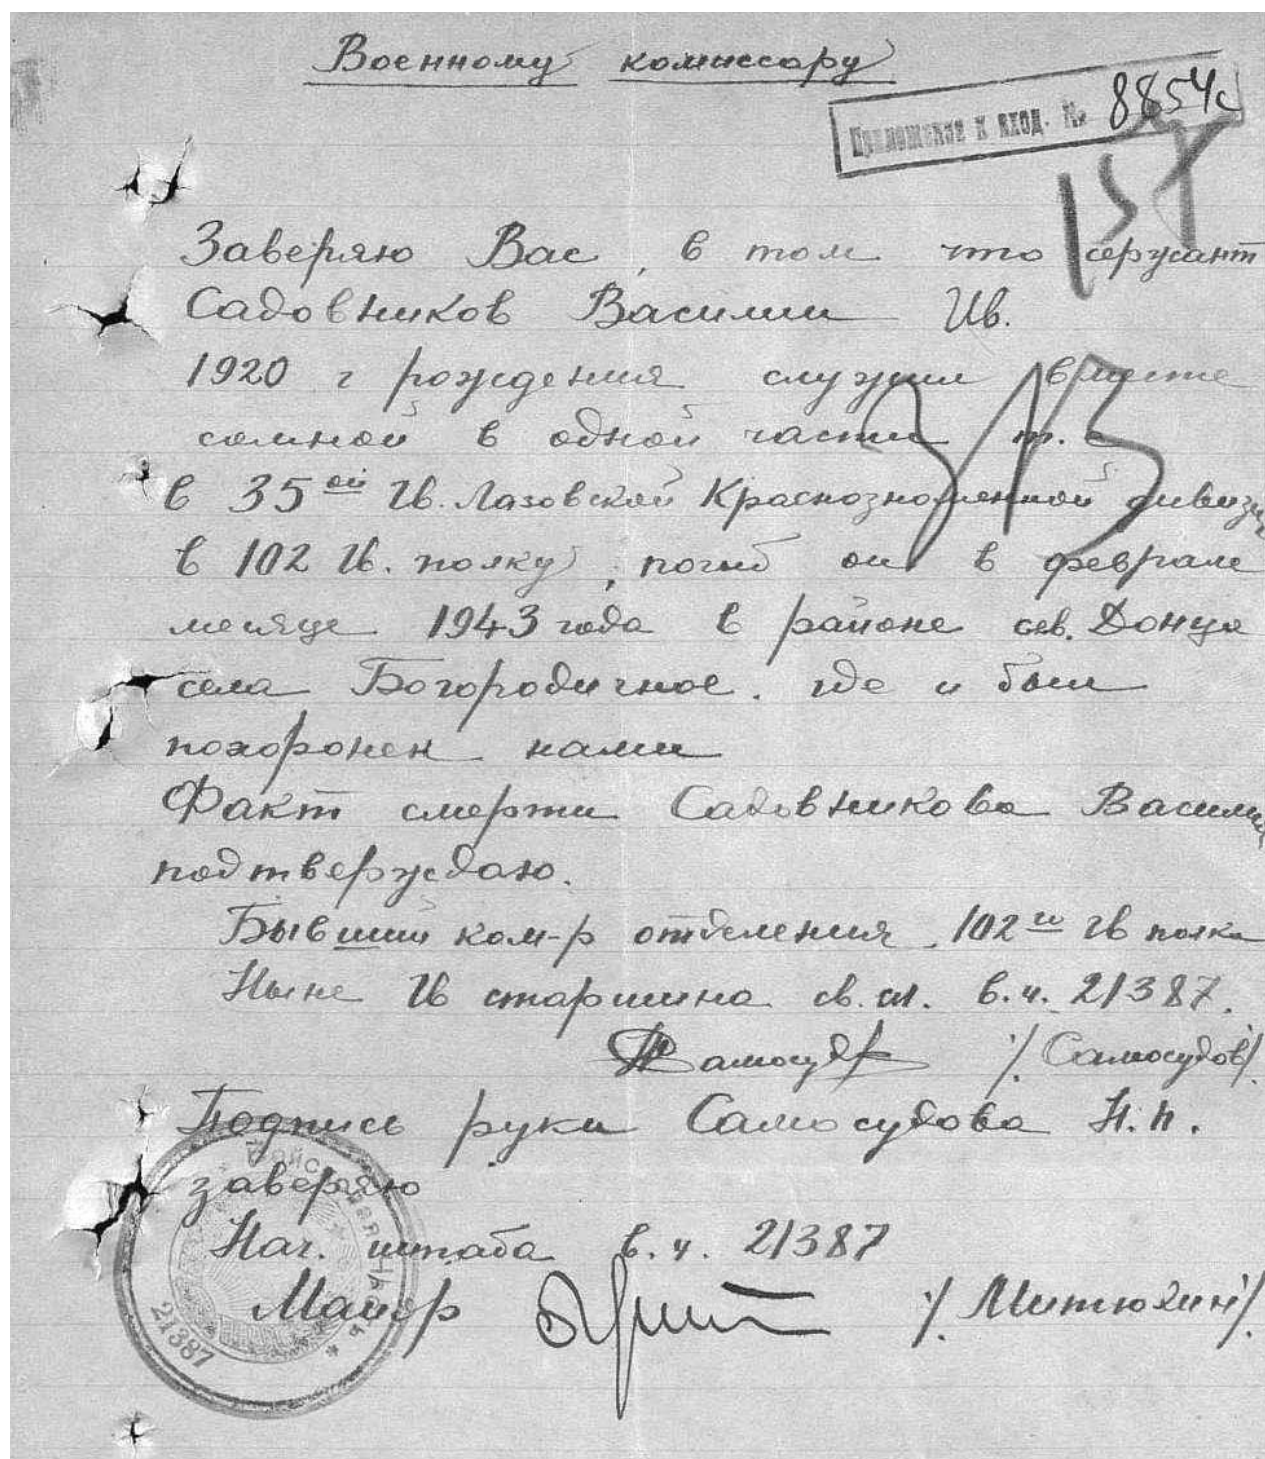 Военному комиссару
Приложение к вход. № 8854с
157
Заверяю Вас, в том что сержант
Садовников Василий Ив.
1920 г рождения служил вместе
сомной в одной части т. е
в 35ой Гв. Лазовской Краснознаменной дивизии
313
в 102 Гв. полку, погиб он в феврале
месяце 1943 года в районе сев. Донца
села Богородичное. где и был
похоронен нами
Факт смерти Садовникова Василия
подтверждаю.
Бывший ком-р отделения 102го Гв полка
Ныне Гв старшина св. сл. в.ч. 21387.
/Самосудов/
Подпись руки Самосудова Н.П.
заверяю
Нач. штаба в.ч. 21387
Майор /Митюхин/
Войсковая часть
21387